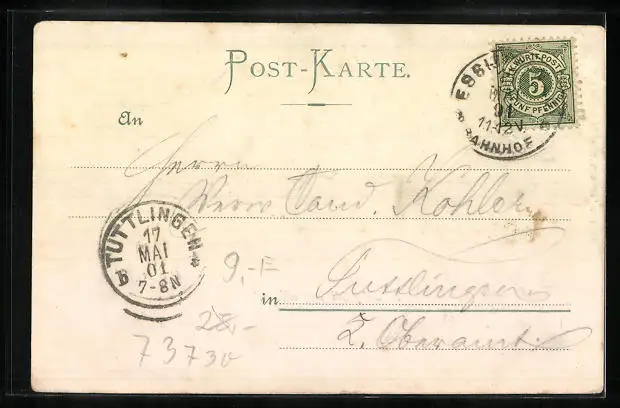 POST-KARTE.
ESSL
5
FÜNF PFENNIG
01
11-12V.
BAHNHOF
An
Herrn
Cand. Kohler
TUTTLINGEN
17
MAI
01
7-8N
B
9,-E
in Tuttlingen
28,-
K. Oberamt.
73730